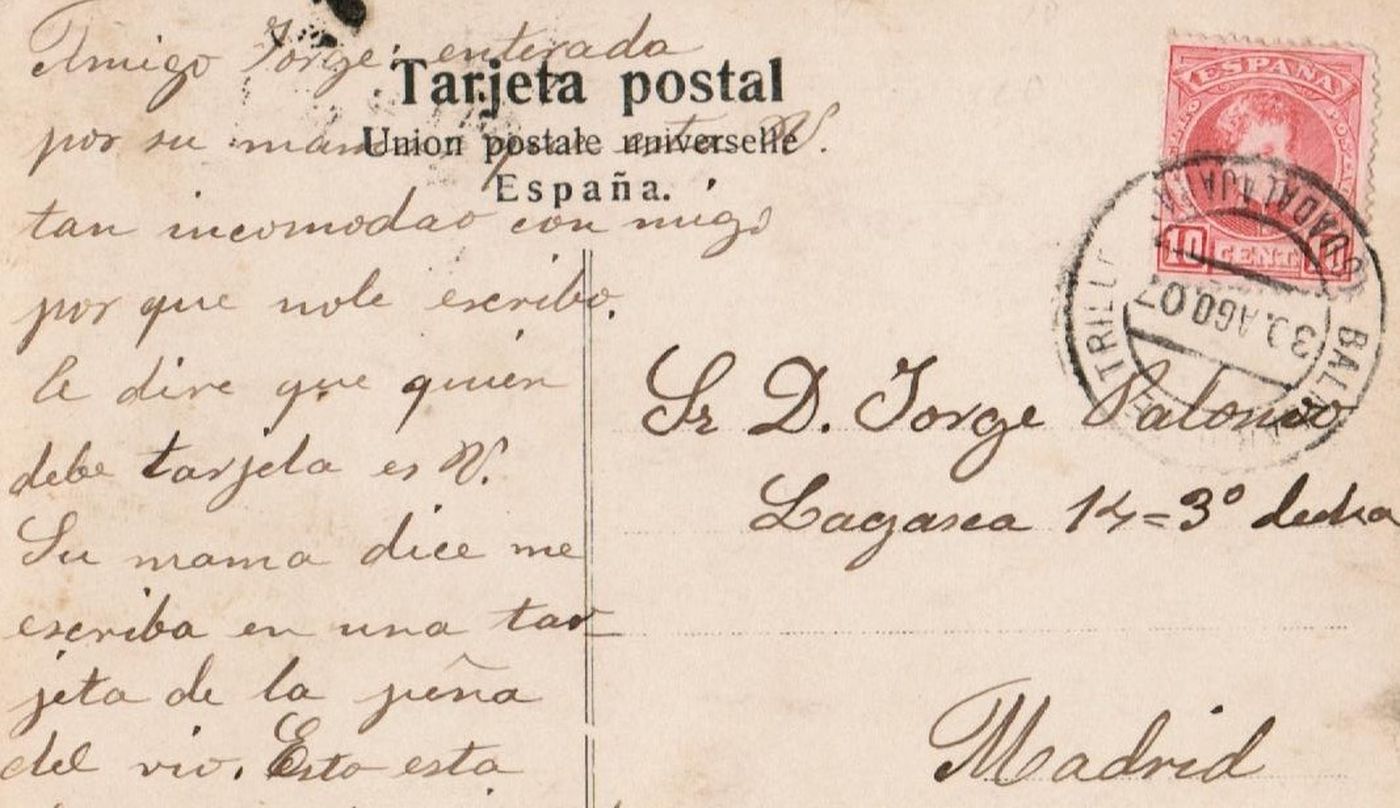 Amigo Jorge: enterada
por su mama que esta V.
tan incomodao con migo
por que nole escribo.
le dire que quien
debe tarjeta es V.
Su mama dice me
escriba en una tar
jeta de la peña
del rio. Esto esta
Tarjeta postal
Union postale universelle
España.
ESPAÑA
10 CENT 10
GUADALAJARA
30 AGO.07
TRILLO
Sr D. Jorge Palomo
Lagasca 14=3º decha
Madrid